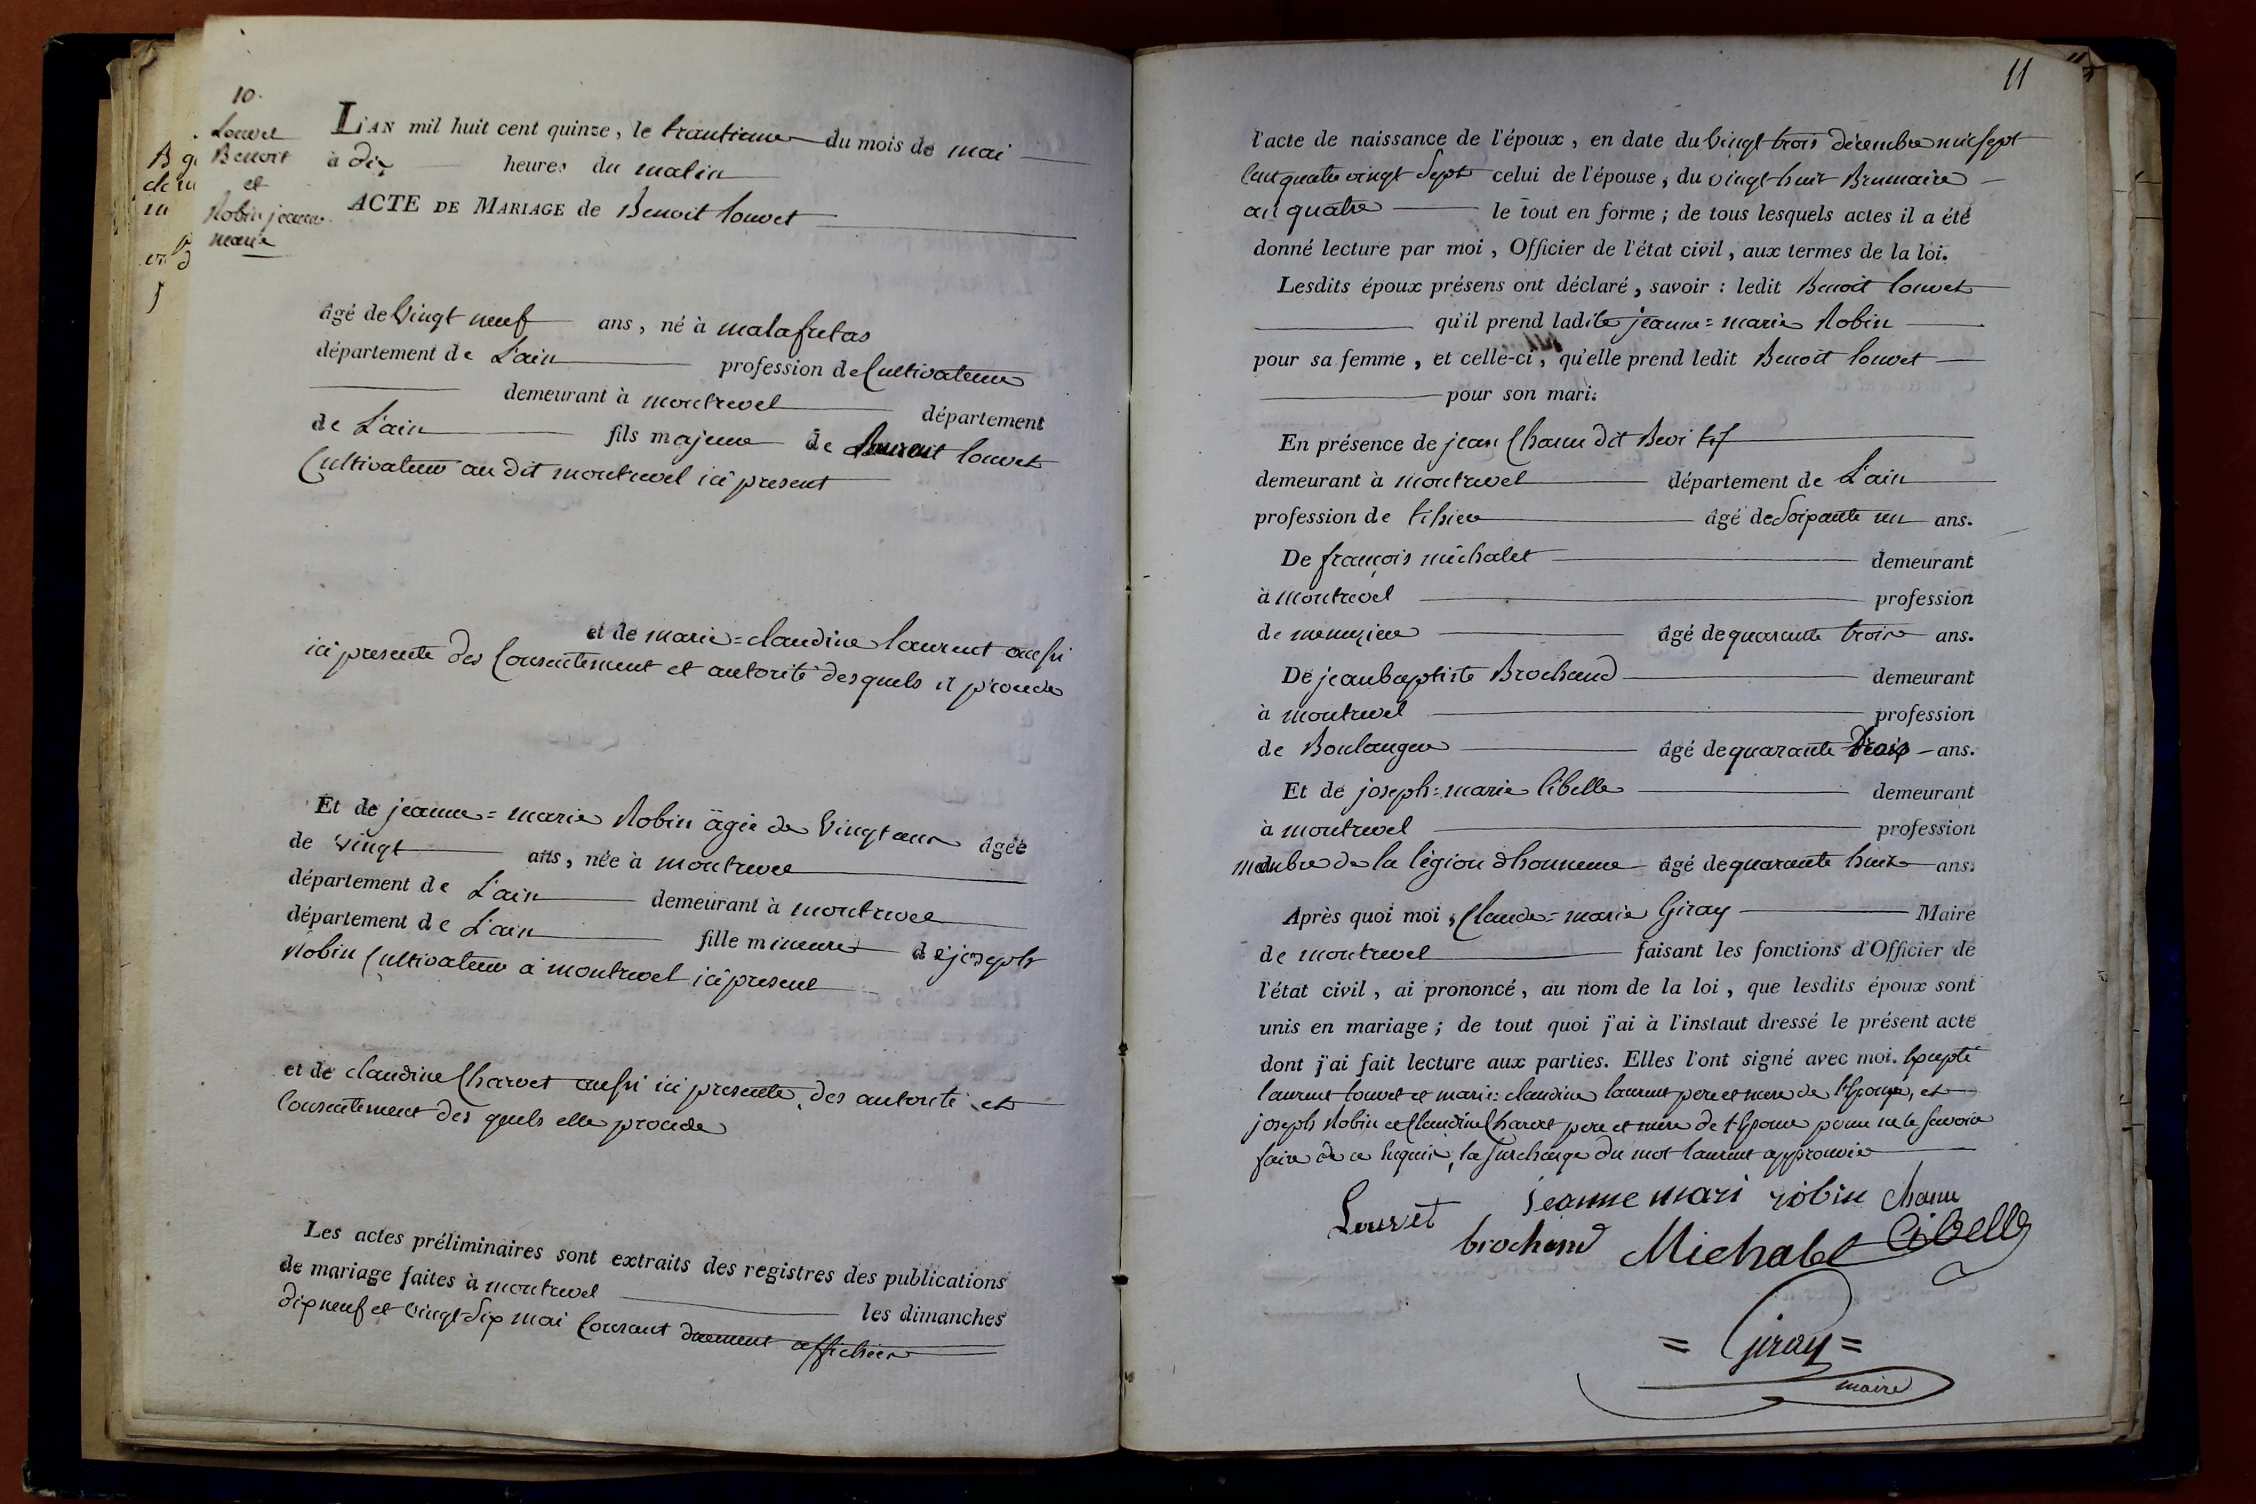 10.
Louvet
Benoit
et
Robin jeanne
marie
L'AN mil huit cent quinze, le trantieme du mois de mai
à dix heures du matin
ACTE DE MARIAGE de Benoit louvet
âgé de vingt neuf ans, né à malafretas
département de L'ain profession de Cultivateur
demeurant à montrevel département
de L'ain fils majeur de laurent louvet
Cultivateur au dit montrevel ici present
et de marie=claudine laurent aussi
ici presente des Consentement et autorité desquels il procede
Et de jeanne=marie Robin âgée de vingt ans âgée
de vingt ans, née à montrevel
département de L'ain demeurant à montrevel
département de L'ain fille mineure de joseph
Robin Cultivateur a montrevel ici present
et de claudine Charvet aussi ici presente, des autorité et
Consentement des quels elle procede
Les actes préliminaires sont extraits des registres des publications
de mariage faites à montrevel les dimanches
dix neuf et vingt six mai Courant duement affichées
11
l'acte de naissance de l'époux, en date du vingt trois decembre mil sept
Cent quatre vingt Sept celui de l'épouse, du vingt huit Brumaire
an quatre le tout en forme; de tous lesquels actes il a été
donné lecture par moi, Officier de l'état civil, aux termes de la loi.
Lesdits époux présens ont déclaré, savoir: ledit Benoit louvet
qu'il prend ladite jeanne=marie Robin
pour sa femme, et celle-ci, qu'elle prend ledit Benoit louvet
pour son mari.
En présence de jean Chanu dit
demeurant à montrevel département de L'ain
profession de âgé de Soixante un ans.
De françois michalet demeurant
à montrevel profession
de menuzier âgé de quarante trois ans.
De jeanbaptiste Brochand demeurant
à montrevel profession
de Boulanger âgé de quarante trois ans.
Et de joseph=marie libelle demeurant
à montrevel profession
membre de la légion d'honneur âgé de quarante huit ans.
Après quoi moi, Claude=marie Giray Maire
de montrevel faisant les fonctions d'Officier de
l'état civil, ai prononcé, au nom de la loi, que lesdits époux sont
unis en mariage; de tout quoi j'ai à l'instant dressé le présent acte
dont j'ai fait lecture aux parties. Elles l'ont signé avec moi. Excepté
laurent louvet et marie=claudine laurent pere et mere de l'Epoux, et
joseph Robin et Claudine Charvet pere et mere de l'Epouse pour ne le Savoir
faire de ce Enquis, la Surcharge du mot laurent approuvée
Louvet jeanne mari robin chanu
brochand Michalet libelle
= Giray =
maire